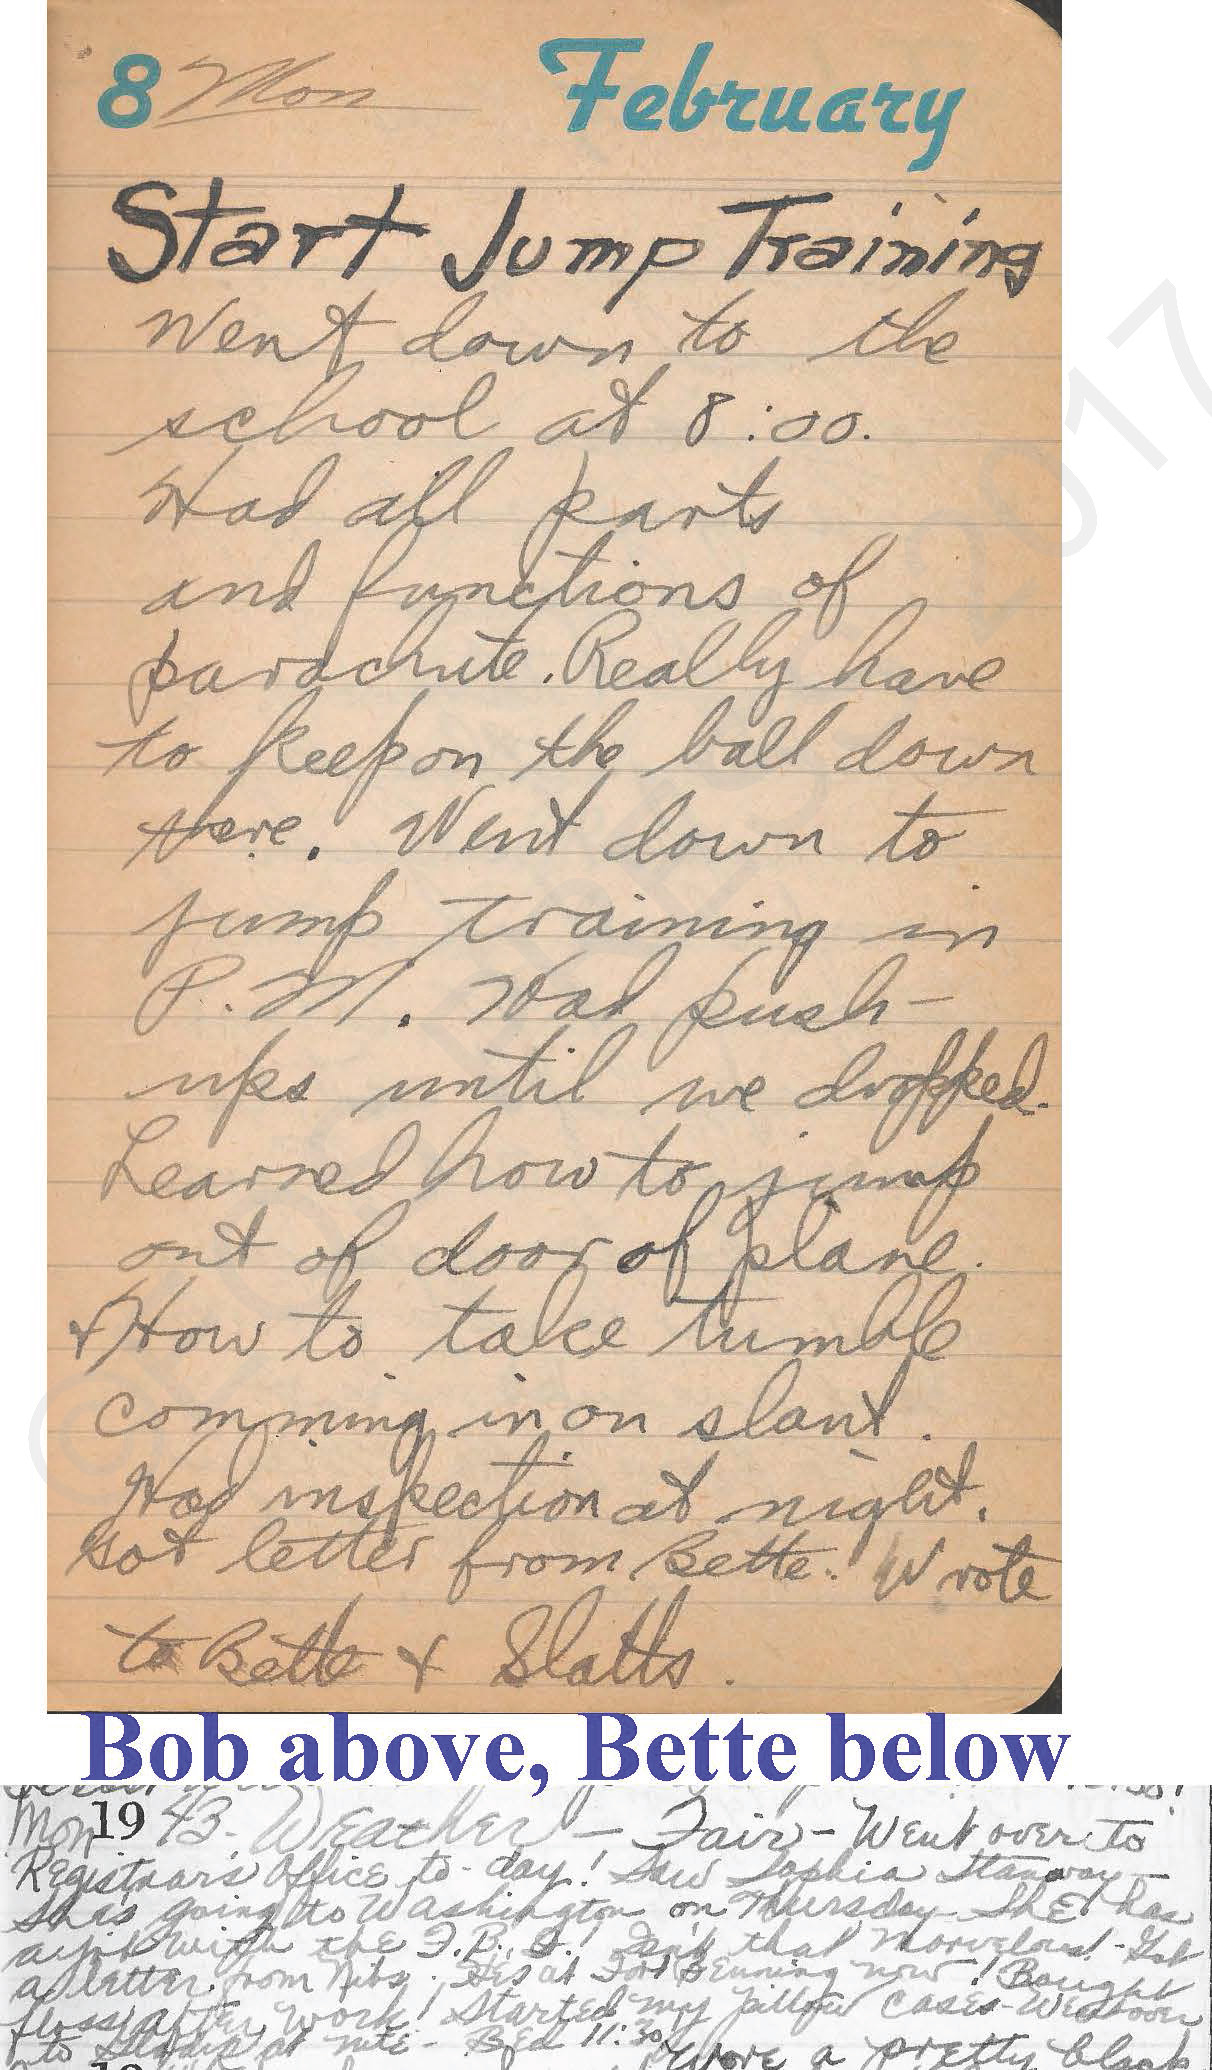 8 Mon February
Start Jump Training
Went down to the
school at 8:00.
Had all parts
and functions of
parachute. Really have
to keep on the ball down
there. Went down to
jump training in
P.M. Had push-
ups until we dropped.
Learned how to jump
out of door of plane.
+ How to take tumble
comming in on slant.
Had inspection at night.
Got letter from Bette. Wrote
to Bette + Slatts.
Bob above, Bette below
Mon 19 43. Weather - Fair - Went over to
Registrar's Office to-day! Saw Sophia Stanway -
She's going to Washington on Thursday. She has
a job with the F.B.I.! Isn't that Marvelous! - Got
a letter from Nibs. He's at Fort Benning now! Bought
floss after work! Started my pillow cases - Went over
to at nite - Bed 11:30
Wore a pretty black
19
2017